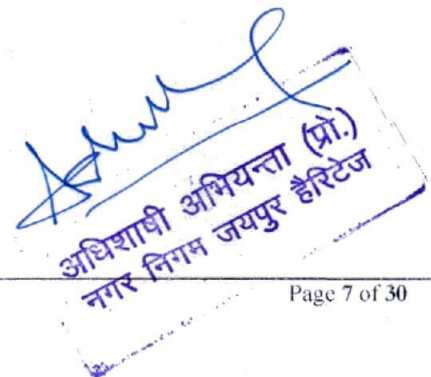 अधिशाषी अभियन्ता (प्रो.)
नगर निगम जयपुर हैरिटेज
Page 7 of 30